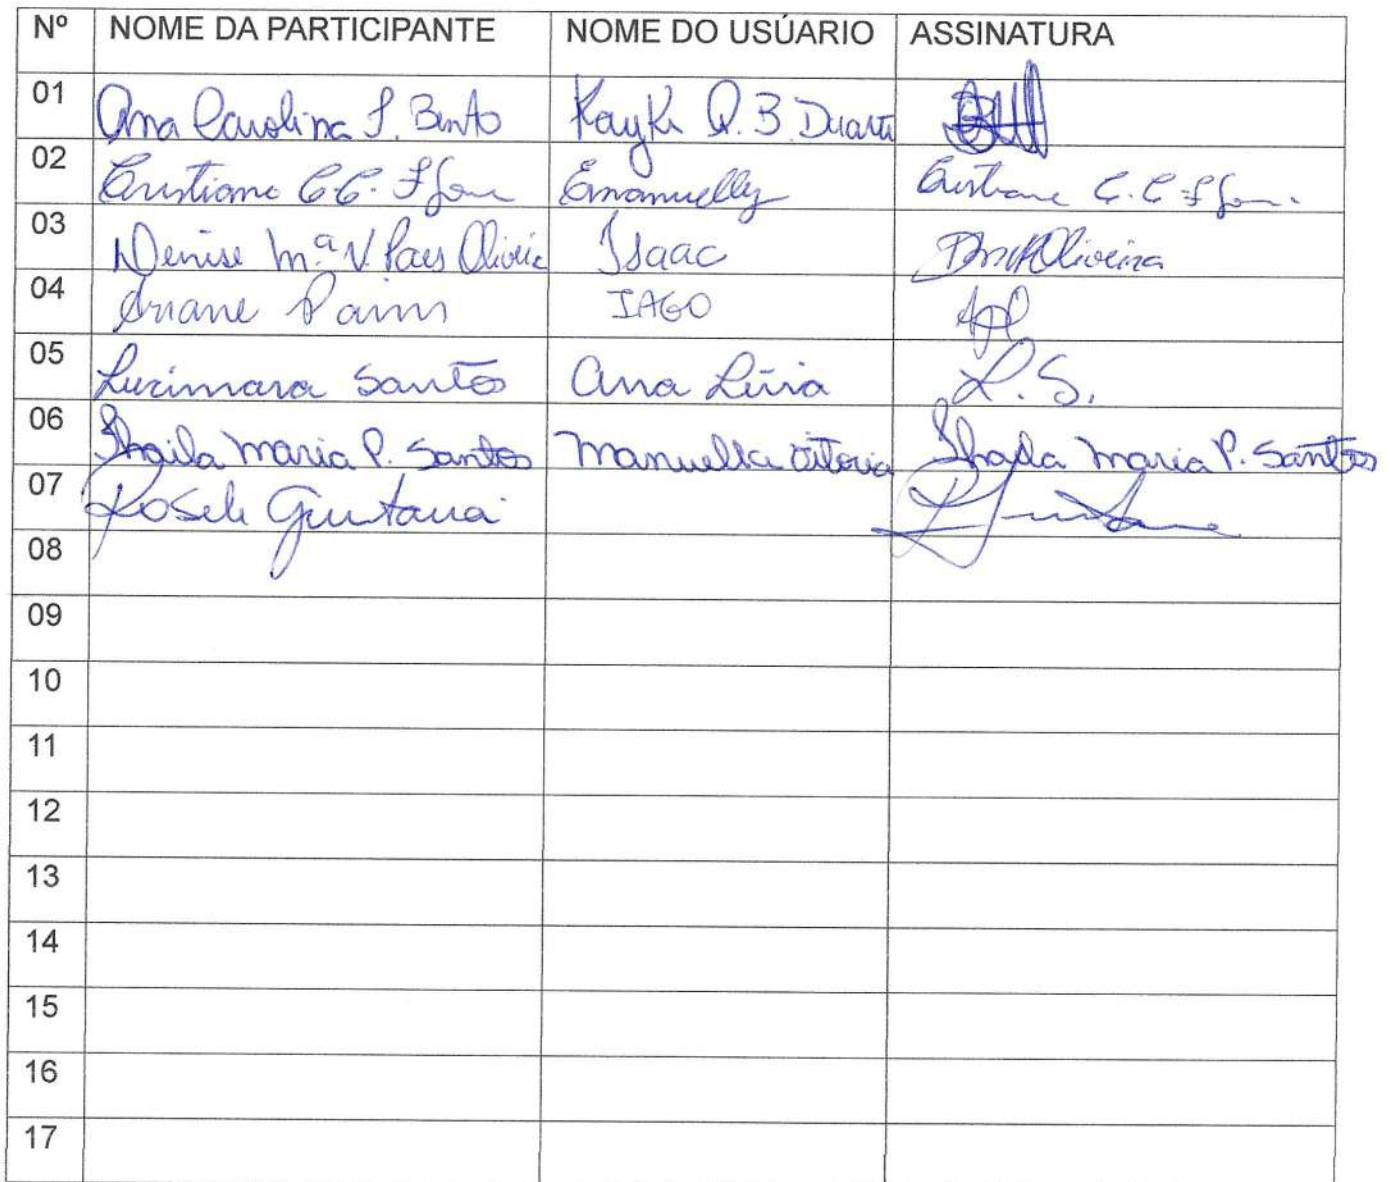 Nº NOME DA PARTICIPANTE NOME DO USÚARIO ASSINATURA
01 Ana Carolina S. Bento Kayke Q. B. Duarte
02 Cristiane C. C. Emanuelly Cristiane C. C.
03 Denise Mª V. Paes Oliveira Isaac Oliveira
04 Ariane Paim IAGO
05 Lucimara Santos Ana Lívia L. S.
06 Shaila Maria P. Santos Manuella Vitoria Shaila Maria P. Santos
07 Roseli
08
09
10
11
12
13
14
15
16
17